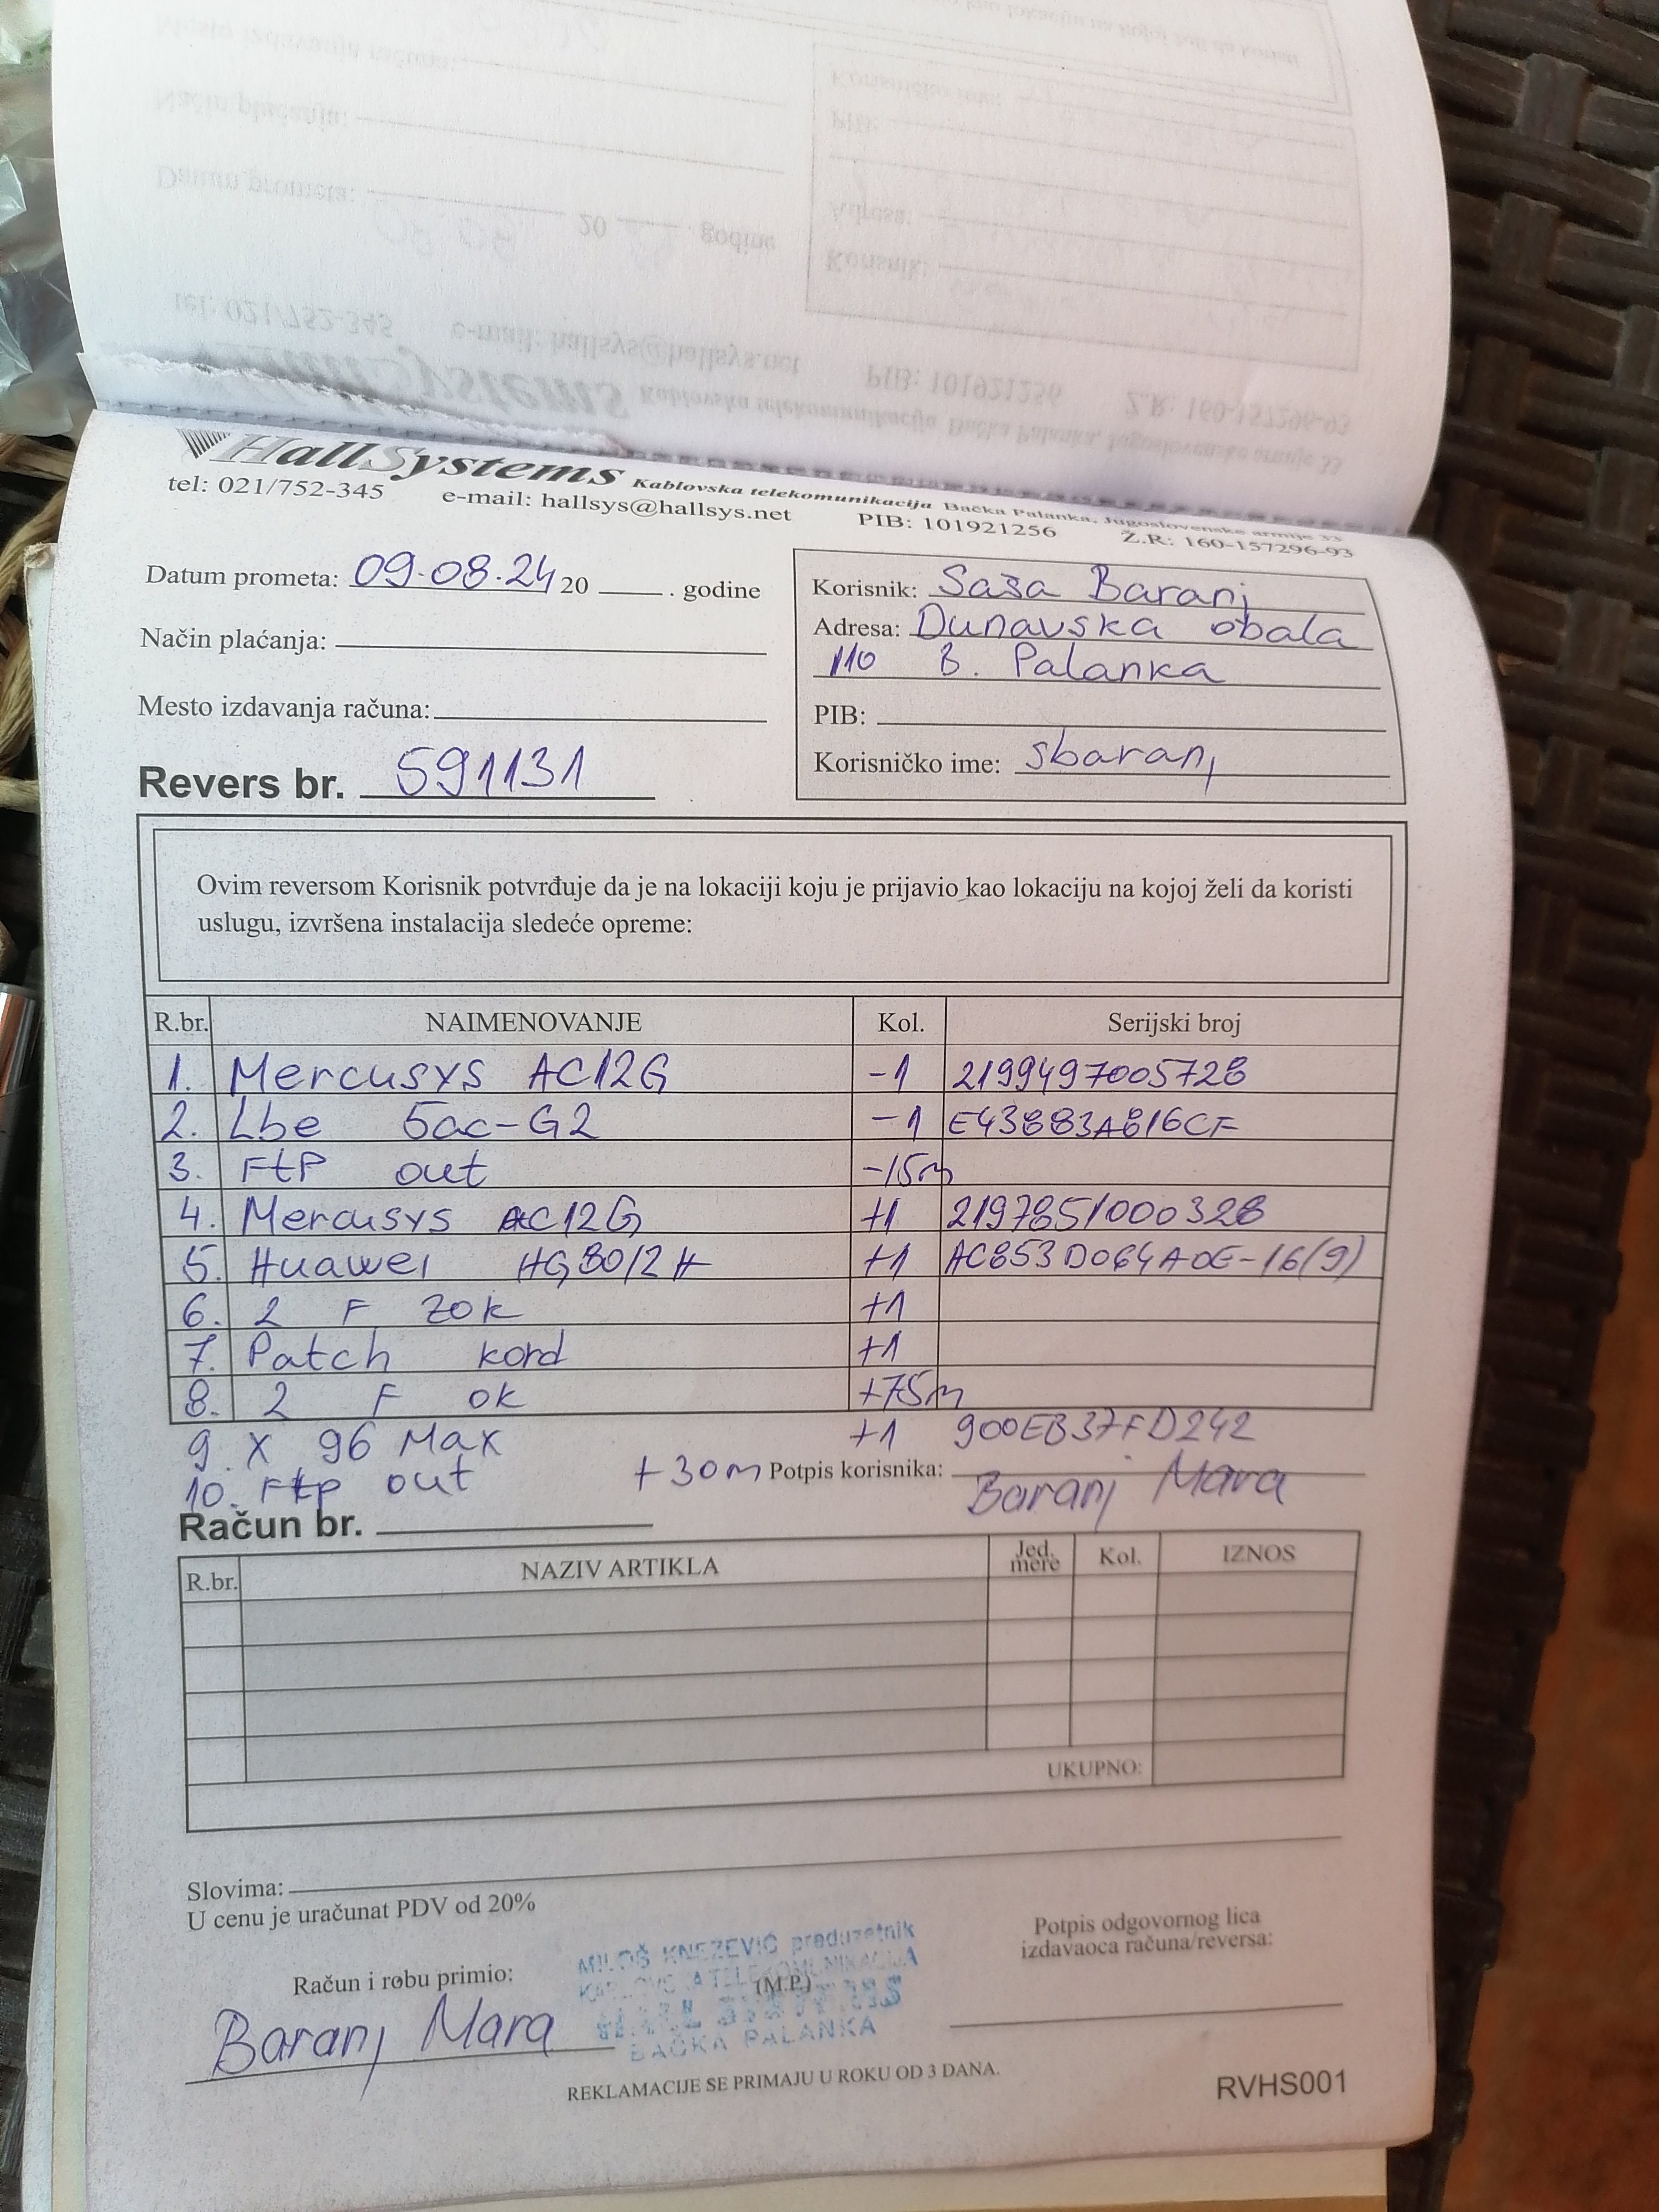 HallSystems Kablovska telekomunikacija Bačka Palanka, Jugoslovenske armije 33
tel: 021/752-345 e-mail: hallsys@hallsys.net PIB: 101921256 Ž.R: 160-157296-93
Datum prometa: 09.08.24 20 ____ . godine
Način plaćanja:
Mesto izdavanja računa:
Revers br. 591131
Korisnik: Saša Baranj
Adresa: Dunavska obala
110 B. Palanka
PIB:
Korisničko ime: sbaranj
Ovim reversom Korisnik potvrđuje da je na lokaciji koju je prijavio kao lokaciju na kojoj želi da koristi
uslugu, izvršena instalacija sledeće opreme:
R.br. NAIMENOVANJE Kol. Serijski broj
1. Mercusys AC12G -1 2199497005728
2. Lbe 5ac-G2 -1 E43883A816CF
3. FtP out -15m
4. Mercusys AC12G +1 2197851000328
5. Huawei HG8012H +1 AC853D064A0E-16(9)
6. 2 F zok +1
7. Patch kord +1
8. 2 F ok +75m
9. X 96 Max +1 900EB37FD242
10. Ftp out +30m
Potpis korisnika: Baranj Mara
Račun br.
R.br. NAZIV ARTIKLA Jed. mere Kol. IZNOS
UKUPNO:
Slovima:
U cenu je uračunat PDV od 20%
Račun i robu primio:
Baranj Mara
MILOŠ KNEZEVIĆ preduzetnik
KABLOVSKA TELEKOMUNIKACIJA
(M.P.)
HALL SYSTEMS
BAČKA PALANKA
Potpis odgovornog lica
izdavaoca računa/reversa:
REKLAMACIJE SE PRIMAJU U ROKU OD 3 DANA.
RVHS001